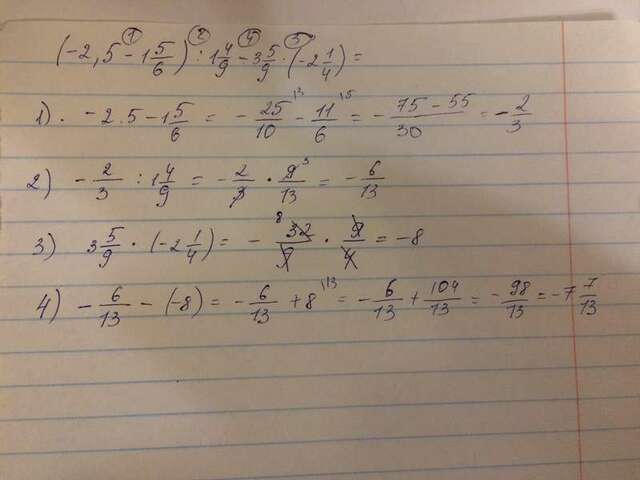 (-2,5 - 1 5/6) : 1 4/9 - 3 5/9 · (-2 1/4) =
① ② ④ ③
1). -2.5 - 1 5/6 = - 25/10 - 11/6 = - 75-55/30 = - 2/3
2) - 2/3 : 1 4/9 = - 2/3 · 9/13 = - 6/13
3) 3 5/9 · (-2 1/4) = - 32/9 · 9/4 = -8
4) - 6/13 - (-8) = - 6/13 + 8 = - 6/13 + 104/13 = - 98/13 = -7 7/13